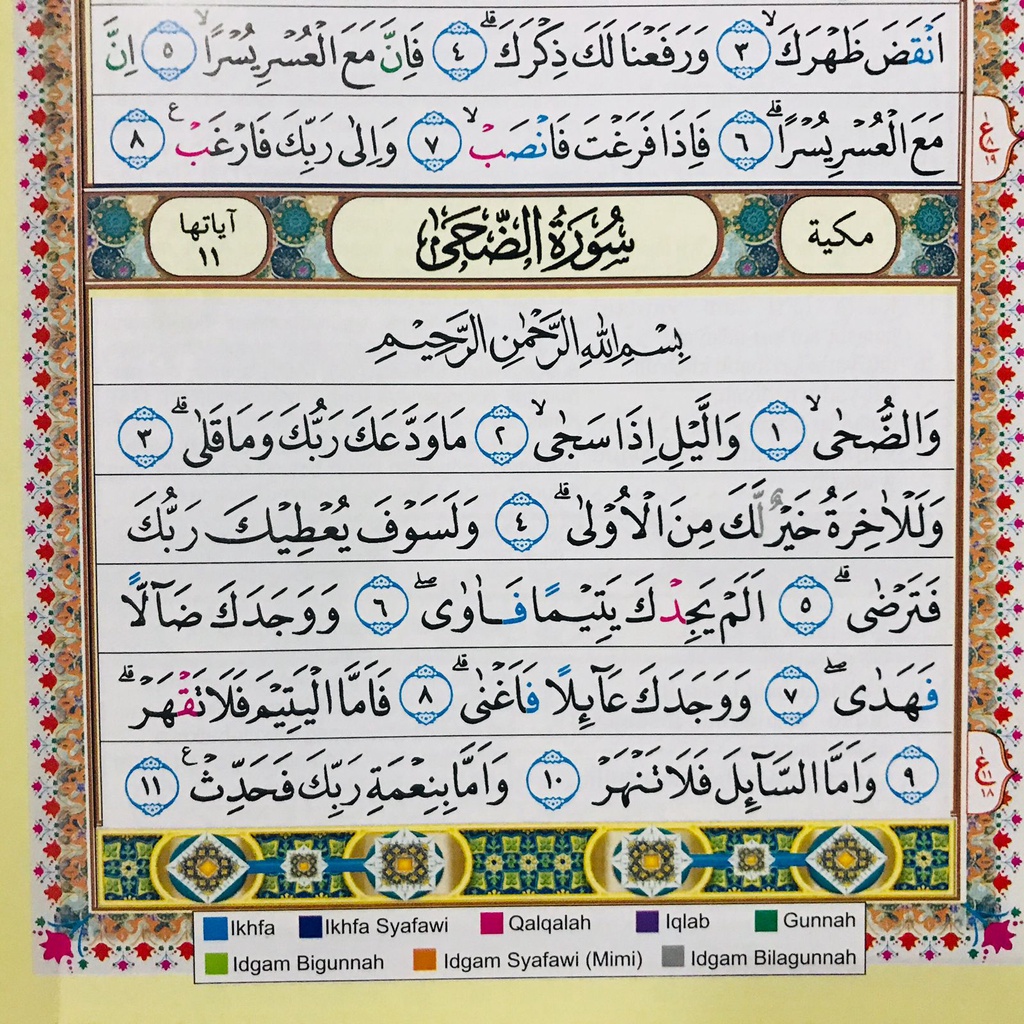 اَنْقَضَ ظَهْرَكَۙ ٣ وَرَفَعْنَا لَكَ ذِكْرَكَۗ ٤ فَاِنَّ مَعَ الْعُسْرِ يُسْرًاۙ ٥ اِنَّ
مَعَ الْعُسْرِ يُسْرًاۗ ٦ فَاِذَا فَرَغْتَ فَانْصَبْۙ ٧ وَاِلٰى رَبِّكَ فَارْغَبْ ࣖ ٨
ع ٨ ١٩
مكية سُوْرَةُ الضُّحٰى آياتها ١١
بِسْمِ اللّٰهِ الرَّحْمٰنِ الرَّحِيْمِ
وَالضُّحٰىۙ ١ وَالَّيْلِ اِذَا سَجٰىۙ ٢ مَا وَدَّعَكَ رَبُّكَ وَمَا قَلٰىۗ ٣
وَلَلْاٰخِرَةُ خَيْرٌ لَّكَ مِنَ الْاُوْلٰىۗ ٤ وَلَسَوْفَ يُعْطِيْكَ رَبُّكَ
فَتَرْضٰىۗ ٥ اَلَمْ يَجِدْكَ يَتِيْمًا فَاٰوٰىۖ ٦ وَوَجَدَكَ ضَاۤلًّا
فَهَدٰىۖ ٧ وَوَجَدَكَ عَاۤىِٕلًا فَاَغْنٰىۗ ٨ فَاَمَّا الْيَتِيْمَ فَلَا تَقْهَرْۗ
٩ وَاَمَّا السَّاۤىِٕلَ فَلَا تَنْهَرْ ١٠ وَاَمَّا بِنِعْمَةِ رَبِّكَ فَحَدِّثْ ࣖ ١١
ع ١١ ١٨
Ikhfa Ikhfa Syafawi Qalqalah Iqlab Gunnah
Idgam Bigunnah Idgam Syafawi (Mimi) Idgam Bilagunnah